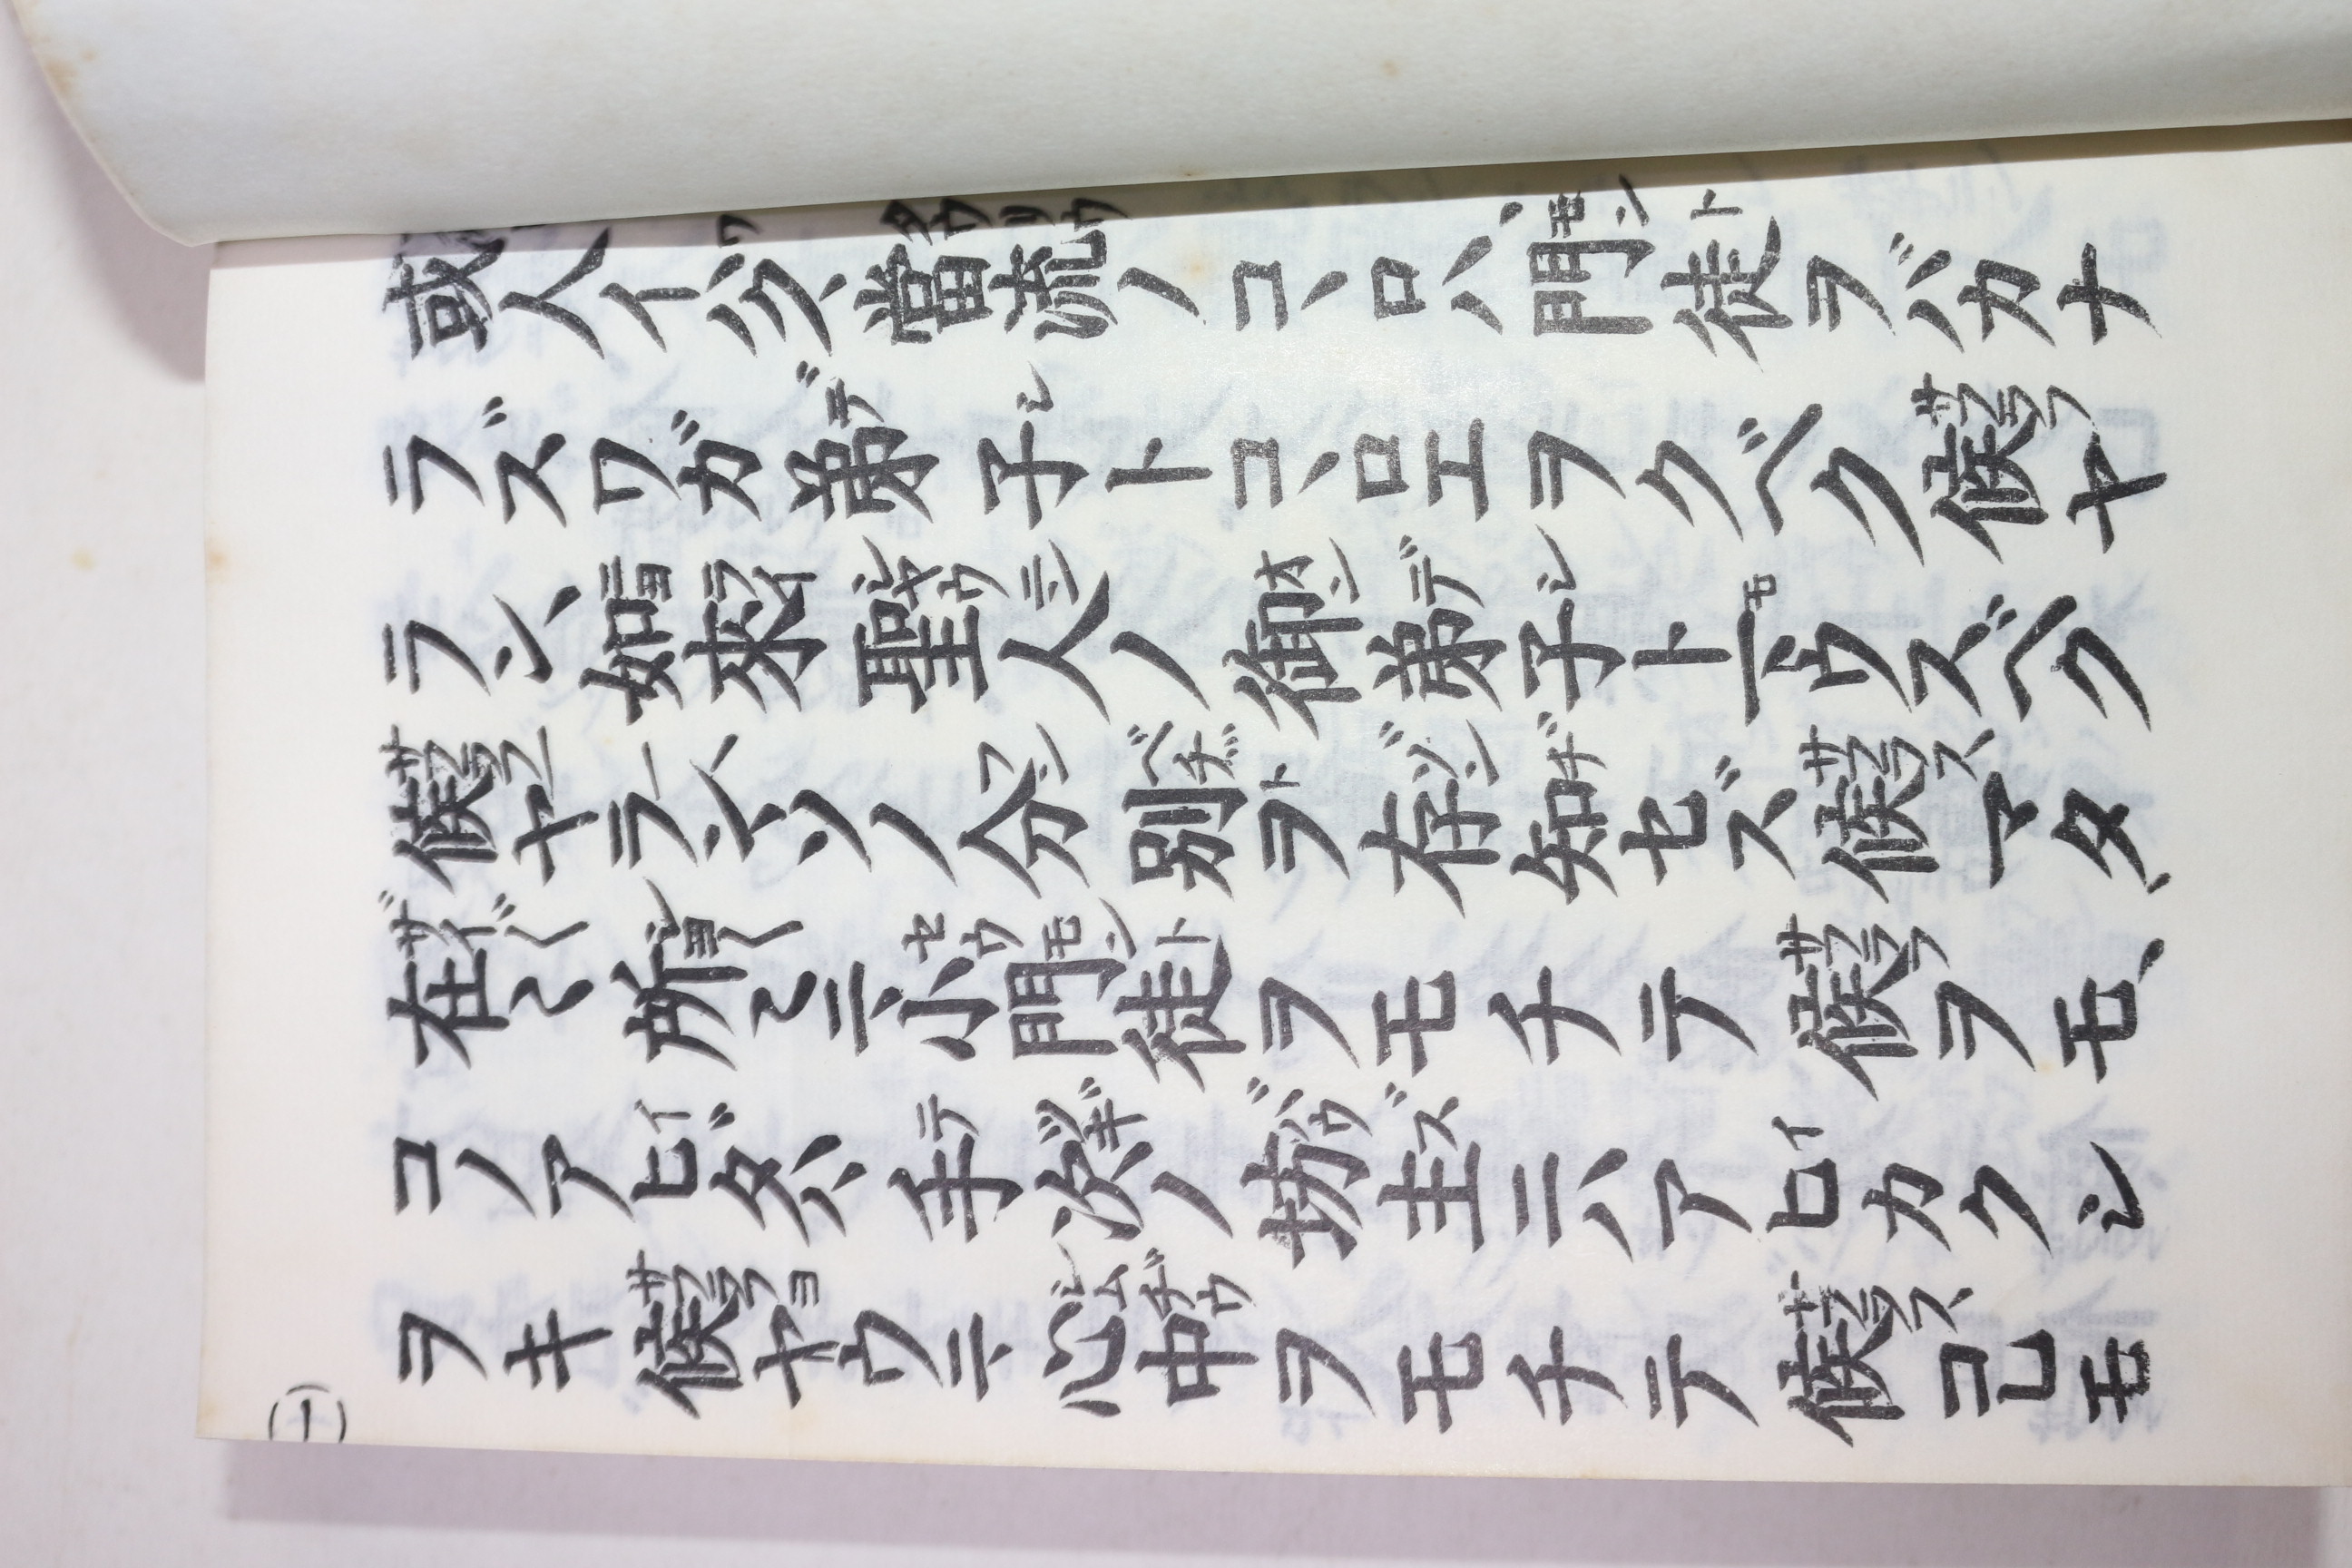 或人イハク、當流ノコヽロハ、門徒ヲバカナ
ラズワガ弟子トコヽロエヲクベク候ヤ
ラン、如來聖人ノ御弟子トマウスベク
候ヤラン、ソノ分別ヲ存知セズ候、マタ、
在々所々ニ、小門徒ヲモチテ候ヲモ、
コノアヒダハ、手次ノ坊主ニハ、アヒカクシ
ヲキ候ヤウニ、心中ヲモチテ候、コレモ
(一)